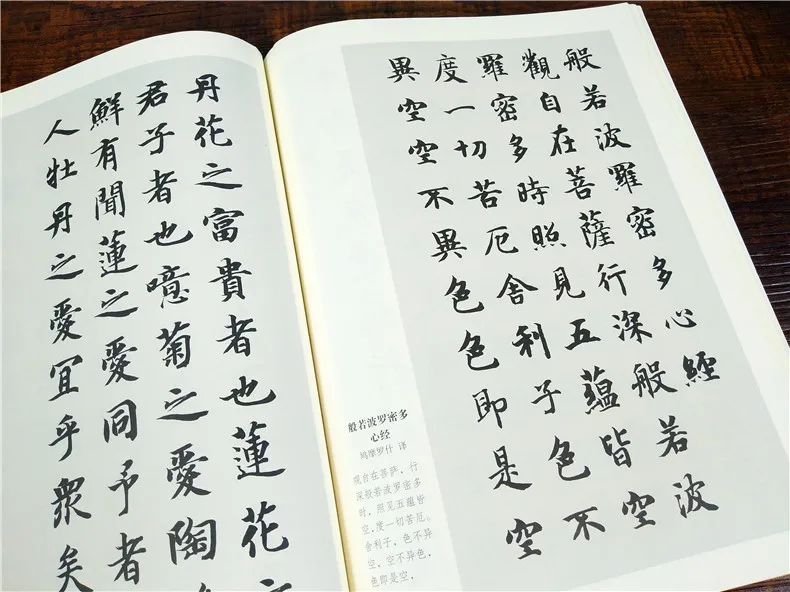 丹花之富貴者也蓮花
君子者也噫菊之愛陶
鮮有聞蓮之愛同予者
人牡丹之愛宜乎眾矣
般若波羅密多心經
觀自在菩薩行深般若波
羅密多時照見五蘊皆空
度一切苦厄舍利子色不
異空空不異色色即是空
般若波罗密多
心经
鸠摩罗什 译
观自在菩萨，行
深般若波罗密多
时，照见五蕴皆
空，度一切苦厄。
舍利子，色不异
空，空不异色，
色即是空，